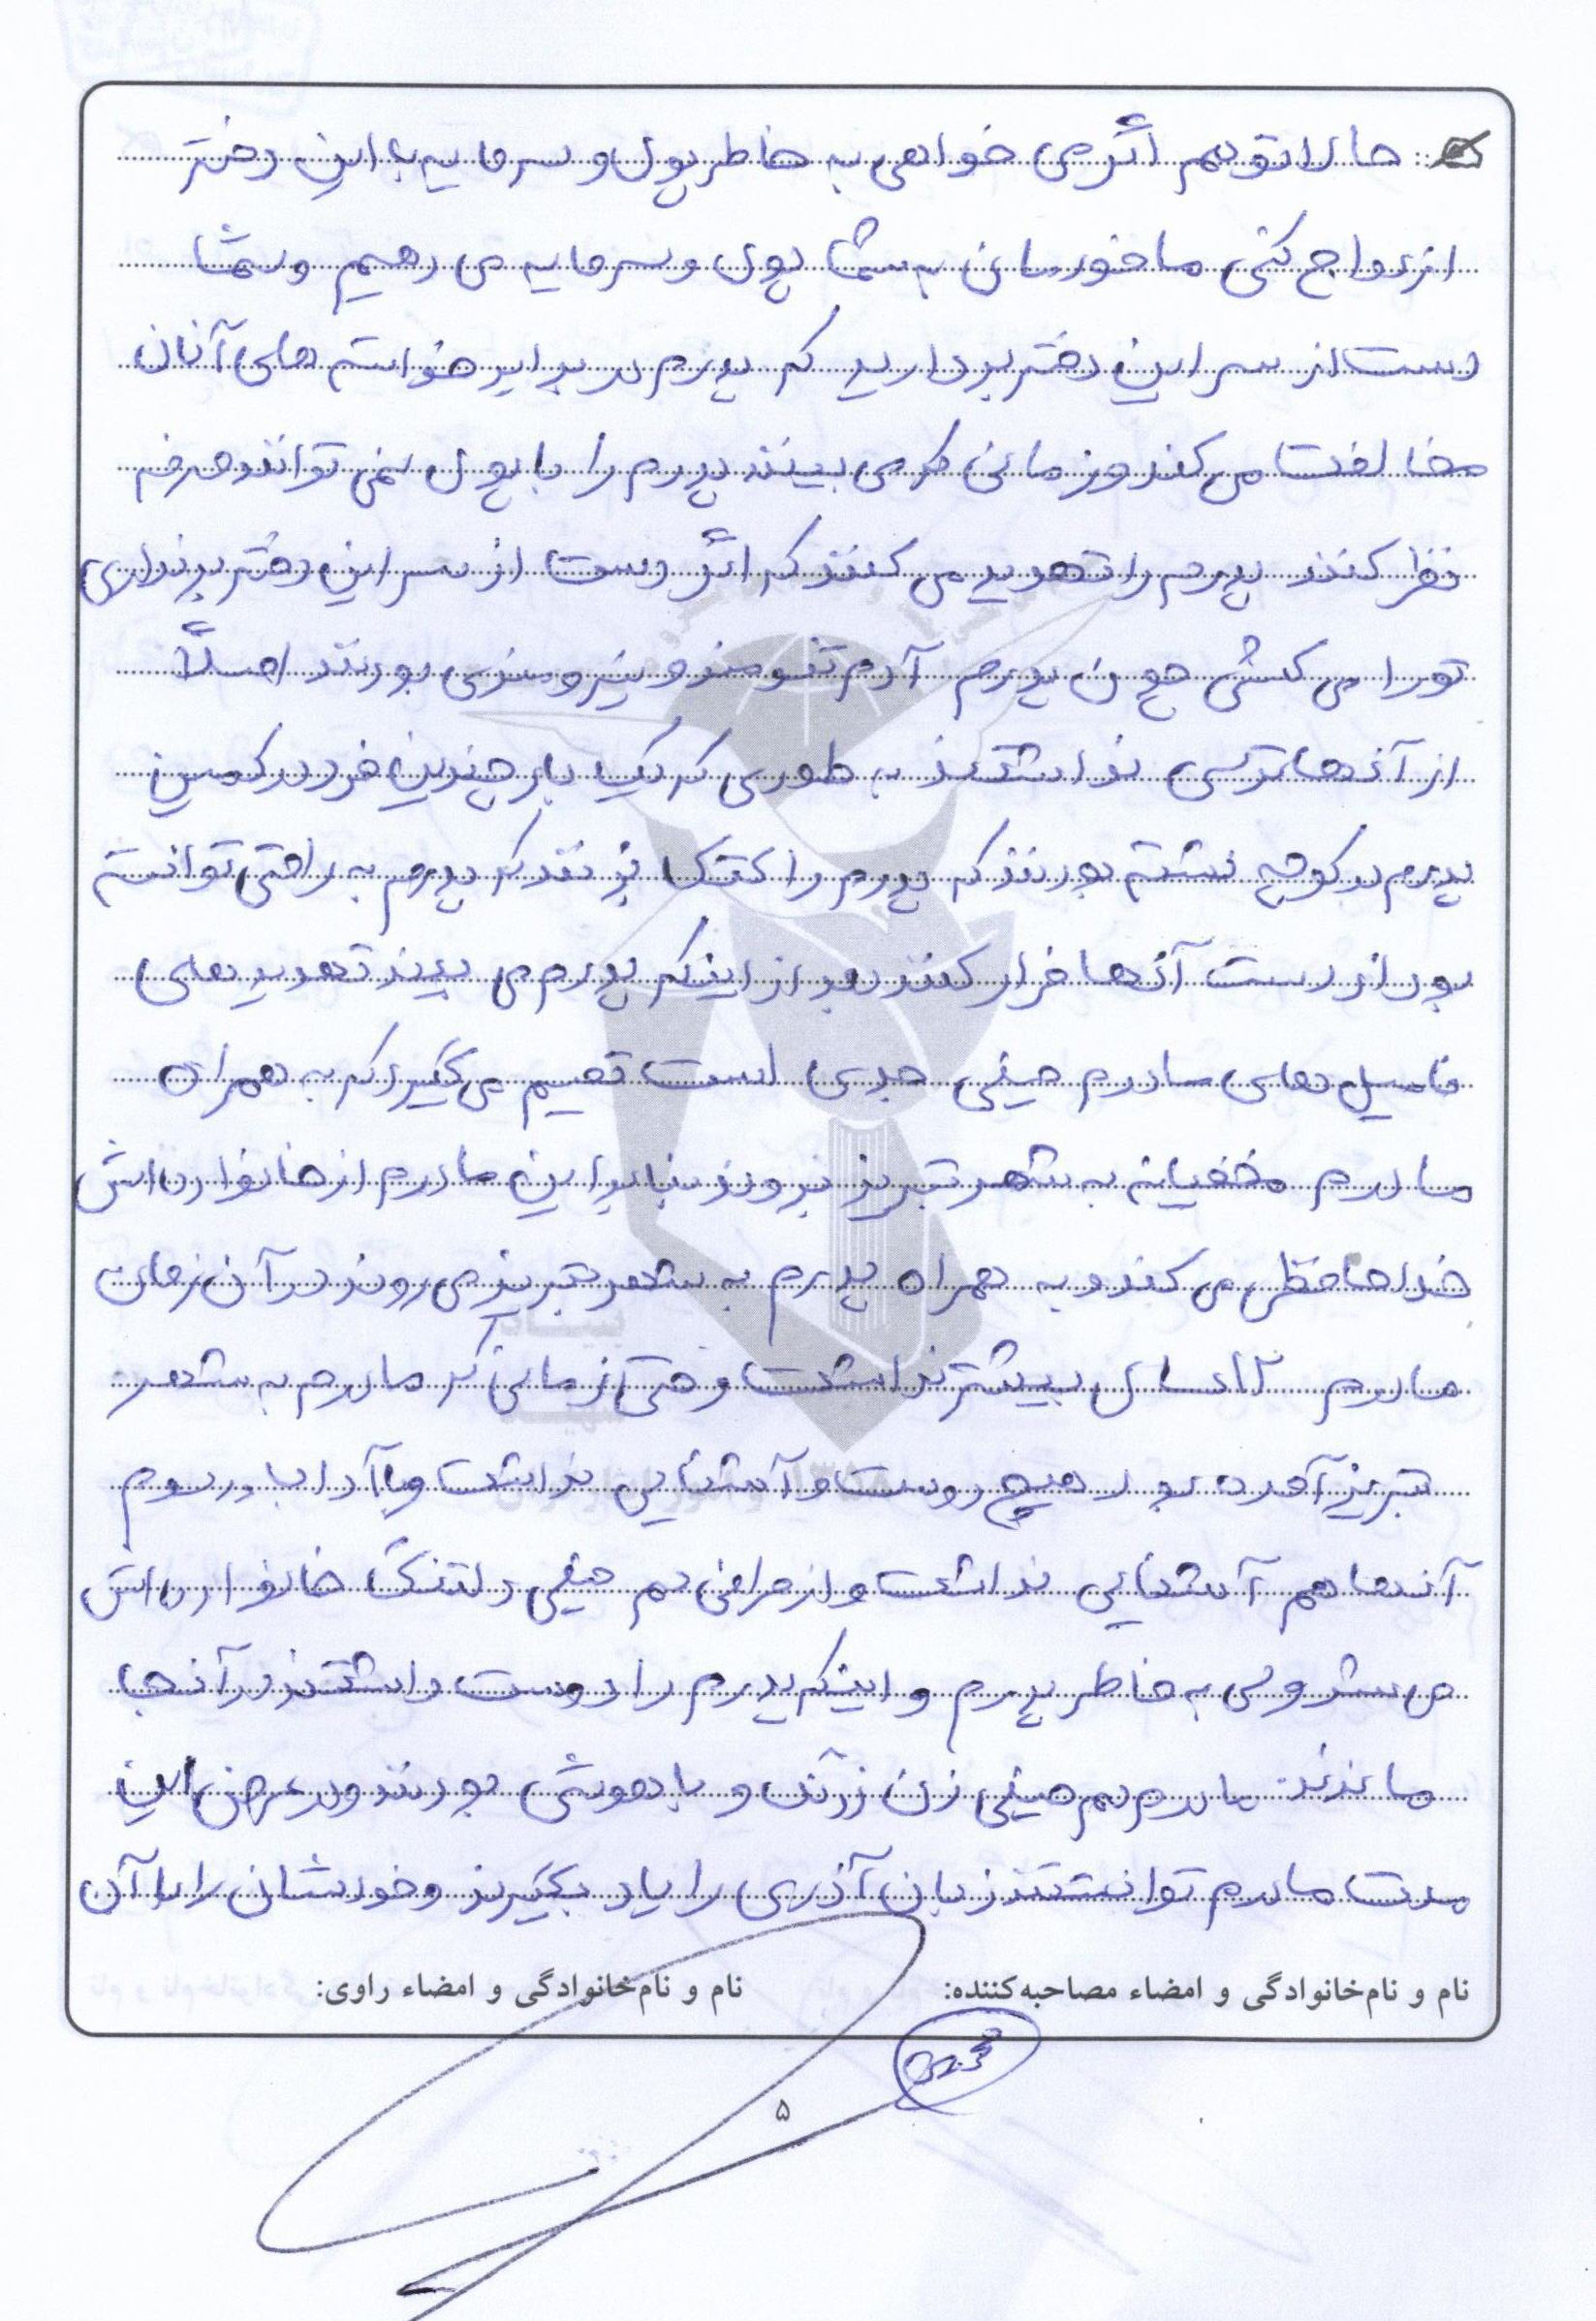 حالا تو هم اگر می خواهی به خاطر پول و سرمایه با این دختر
ازدواج کنی ما خودمان به شما پول و سرمایه می دهیم و شما
دست از سر این دختر بردارید که پدرم در برابر خواسته های آنان
مخالفت می کند و زمانی که می بینند پدرم را با پول نمی توانند صرفه
نظر کنند پدرم را تهدید می کنند که اگر دست از سر این دختر برنداری
تو را می کشی چون پدرم آدم تنومند و نیرومندی بودند اصلاً
از آنها ترسی نداشتند به طوری که یک بار چندین فرد در کمین
پدرم در کوچه نشسته بودند که پدرم را کتک بزنند که پدرم به راحتی توانسته
بود از دست آنها فرار کنند بعد از اینکه پدرم می بیند تهدیدهای
فامیل های مادرم خیلی جدی است تصیم می گیرد که به همراه
مادرم مخفیانه به شهر تبریز بروند بنابراین مادرم از خانواده اش
خداحافظی می کند و به همراه پدرم به شهر تبریز می روند در آن زمان
مادرم ۱۲ سال بیشتر نداشت و حتی زمانی که مادرم به شهر
تبریز آمده بود هیچ دوست و آشنایی نداشت و با آداب و رسوم
آنها هم آشنایی نداشت و از طرفی هم خیلی دلتنگ خانواده اش
می شد ولی به خاطر پدرم و اینکه پدرم را دوست داشتند در آنجا
ماندند. مادرم هم خیلی زن زرنگ و باهوشی بودند و در عرض این
مدت مادرم توانستند زبان آذری را یاد بگیرند و خودشان را با آن
نام و نام‌خانوادگی و امضاء مصاحبه‌کننده: نام و نام‌خانوادگی و امضاء راوی:
۵